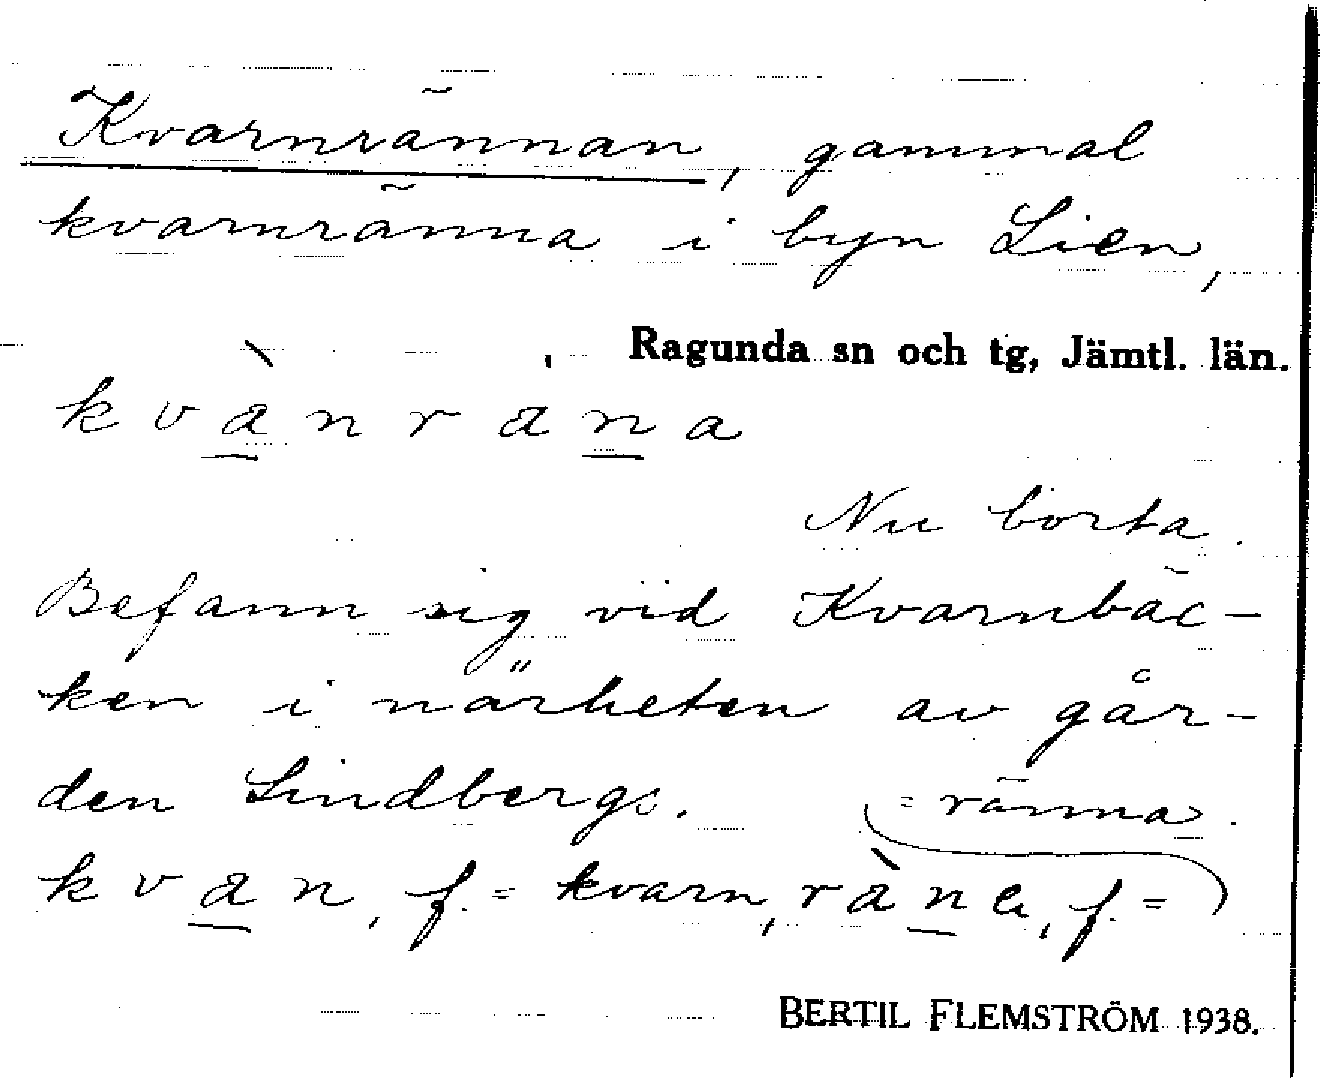 Kvarnrännan, gammal
kvarnränna i byn Lien,
Ragunda sn och tg, Jämtl. län.
k v a n r a n a
Nu borta.
Befann sig vid Kvarnbäc-
ken i närheten av går-
den Lindbergs. = ränna.
k v a n, f. = kvarn, r a n a, f. =
BERTIL FLEMSTRÖM 1938.